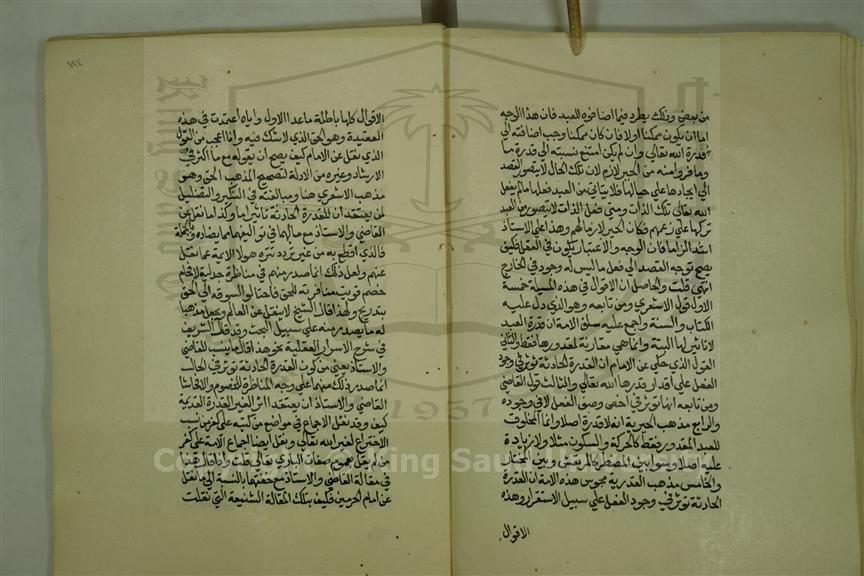 من بعض وذلك يطرد فيما اضافوه للعبد فان هذا الوجه
اما ان يكون ممكنا اولا فان كان ممكنا وجب اضافته الى
قدرة الله تعالى وان لم يكن امتنع نسبته الى قدرة ما
وما فروا منه من الجبر لازم لان تلك الحال لا يتصور القصد
الى ايجادها على حيالها فلا يتاتى من العبد فعلها ما لم يفعل
الله تعالى تلك الذات ومتى فعل الذات لا يتصور من العبد
تركها على زعمهم فكان الجبر لازما لهم وهذا على الاستاذ
اشد الزاما فان الوجه والاعتبار يكون في العقل فكيف
يصح توجه القصد الى فعل ما ليس له وجود في الخارج
انتهى قلت والحاصل ان الاقوال في هذه المسيلة خمسة
الاول قول الاشعري ومن تابعه وهو الذي دل عليه
الكتاب والسنة واجمع عليه سلف الامة ان قدرة العبد
لا تاثير لها البتة وانما هي مقارنة لمقدورها فقط والثاني
القول الذي حكي عن الامام ان القدرة الحادثة توثر في وجود
الفعل على اقدار قدرها الله تعالى والثالث قول القاضي
ومن تابعه انها توثر في اخص وصف الفعل لا في وجوده
والرابع مذهب الجبرية انه لا قدرة اصلا وانما المخلوق
للعبد المقدور فقط كالحركة والسكون مثلا ولا زيادة
عليه اصلا وسوا بين المضطر كالمرتعش وبين المختار
والخامس مذهب القدرية مجوس هذه الامة ان القدرة
الحادثة توثر في وجود الفعل على سبيل الاستقرار وهذه
الاقوال
الاقوال كلها باطلة ما عدا الاول واياه اعتمدت في هذه
العقيدة وهو الحق الذي لا شك فيه وانا اعجب من القول
الذي نقل عن الامام كيف يصح ان يقوله مع ما اكثر في
الارشاد وغيره من الادلة لتصحيح المذهب الحق وهو
مذهب الاشعري هنا ومبالغته في النكير والتضليل
لمن يعتقد ان للقدرة الحادثة تاثيرا ما وكذا ما نقل عن
القاضي والاستاذ مع ما لهما في تواليفهما مما يضاده وبالجملة
فالذي اقطع به من غير تردد تنزه هولا الايمة عما نقل
عنهم ولعل ذلك انما صدر منهم في مناظرة جدلية لافحام
خصم قويت منافرته للحق فاحتالوا لسوقه الى الحق
بتدريج ولهذا قال الشيخ لا ينقل عن العالم ويجعل مذهبا
له ما يصدر منه على سبيل البحث وقد قال الشريف
في شرح الاسرار العقلية نحو هذا قال ما ينسب للقاضي
والاستاذ يعني من كون القدرة الحادثة توثر في الحال
انما صدر ذلك منهما على وجه المناظرة للخصوم والا فحاشا
القاضي والاستاذ ان يعتقد اثر الغير القدرة القديمة
كيف وقد نقل الاجماع في مواضع من كتبه على من نسب
الاختراع لغير الله تعالى ونقل ايضا اجماع الامة على كفر
من لم يقل بعموم صفات الباري تعالى قلت واذا قال هذا
في مقالة القاضي والاستاذ مع خفتها بالنسبة الى ما نقل
عن امام الحرمين فكيف بتلك المقالة الشنيعة التي نقلت
Copyright © King Saud University
1957